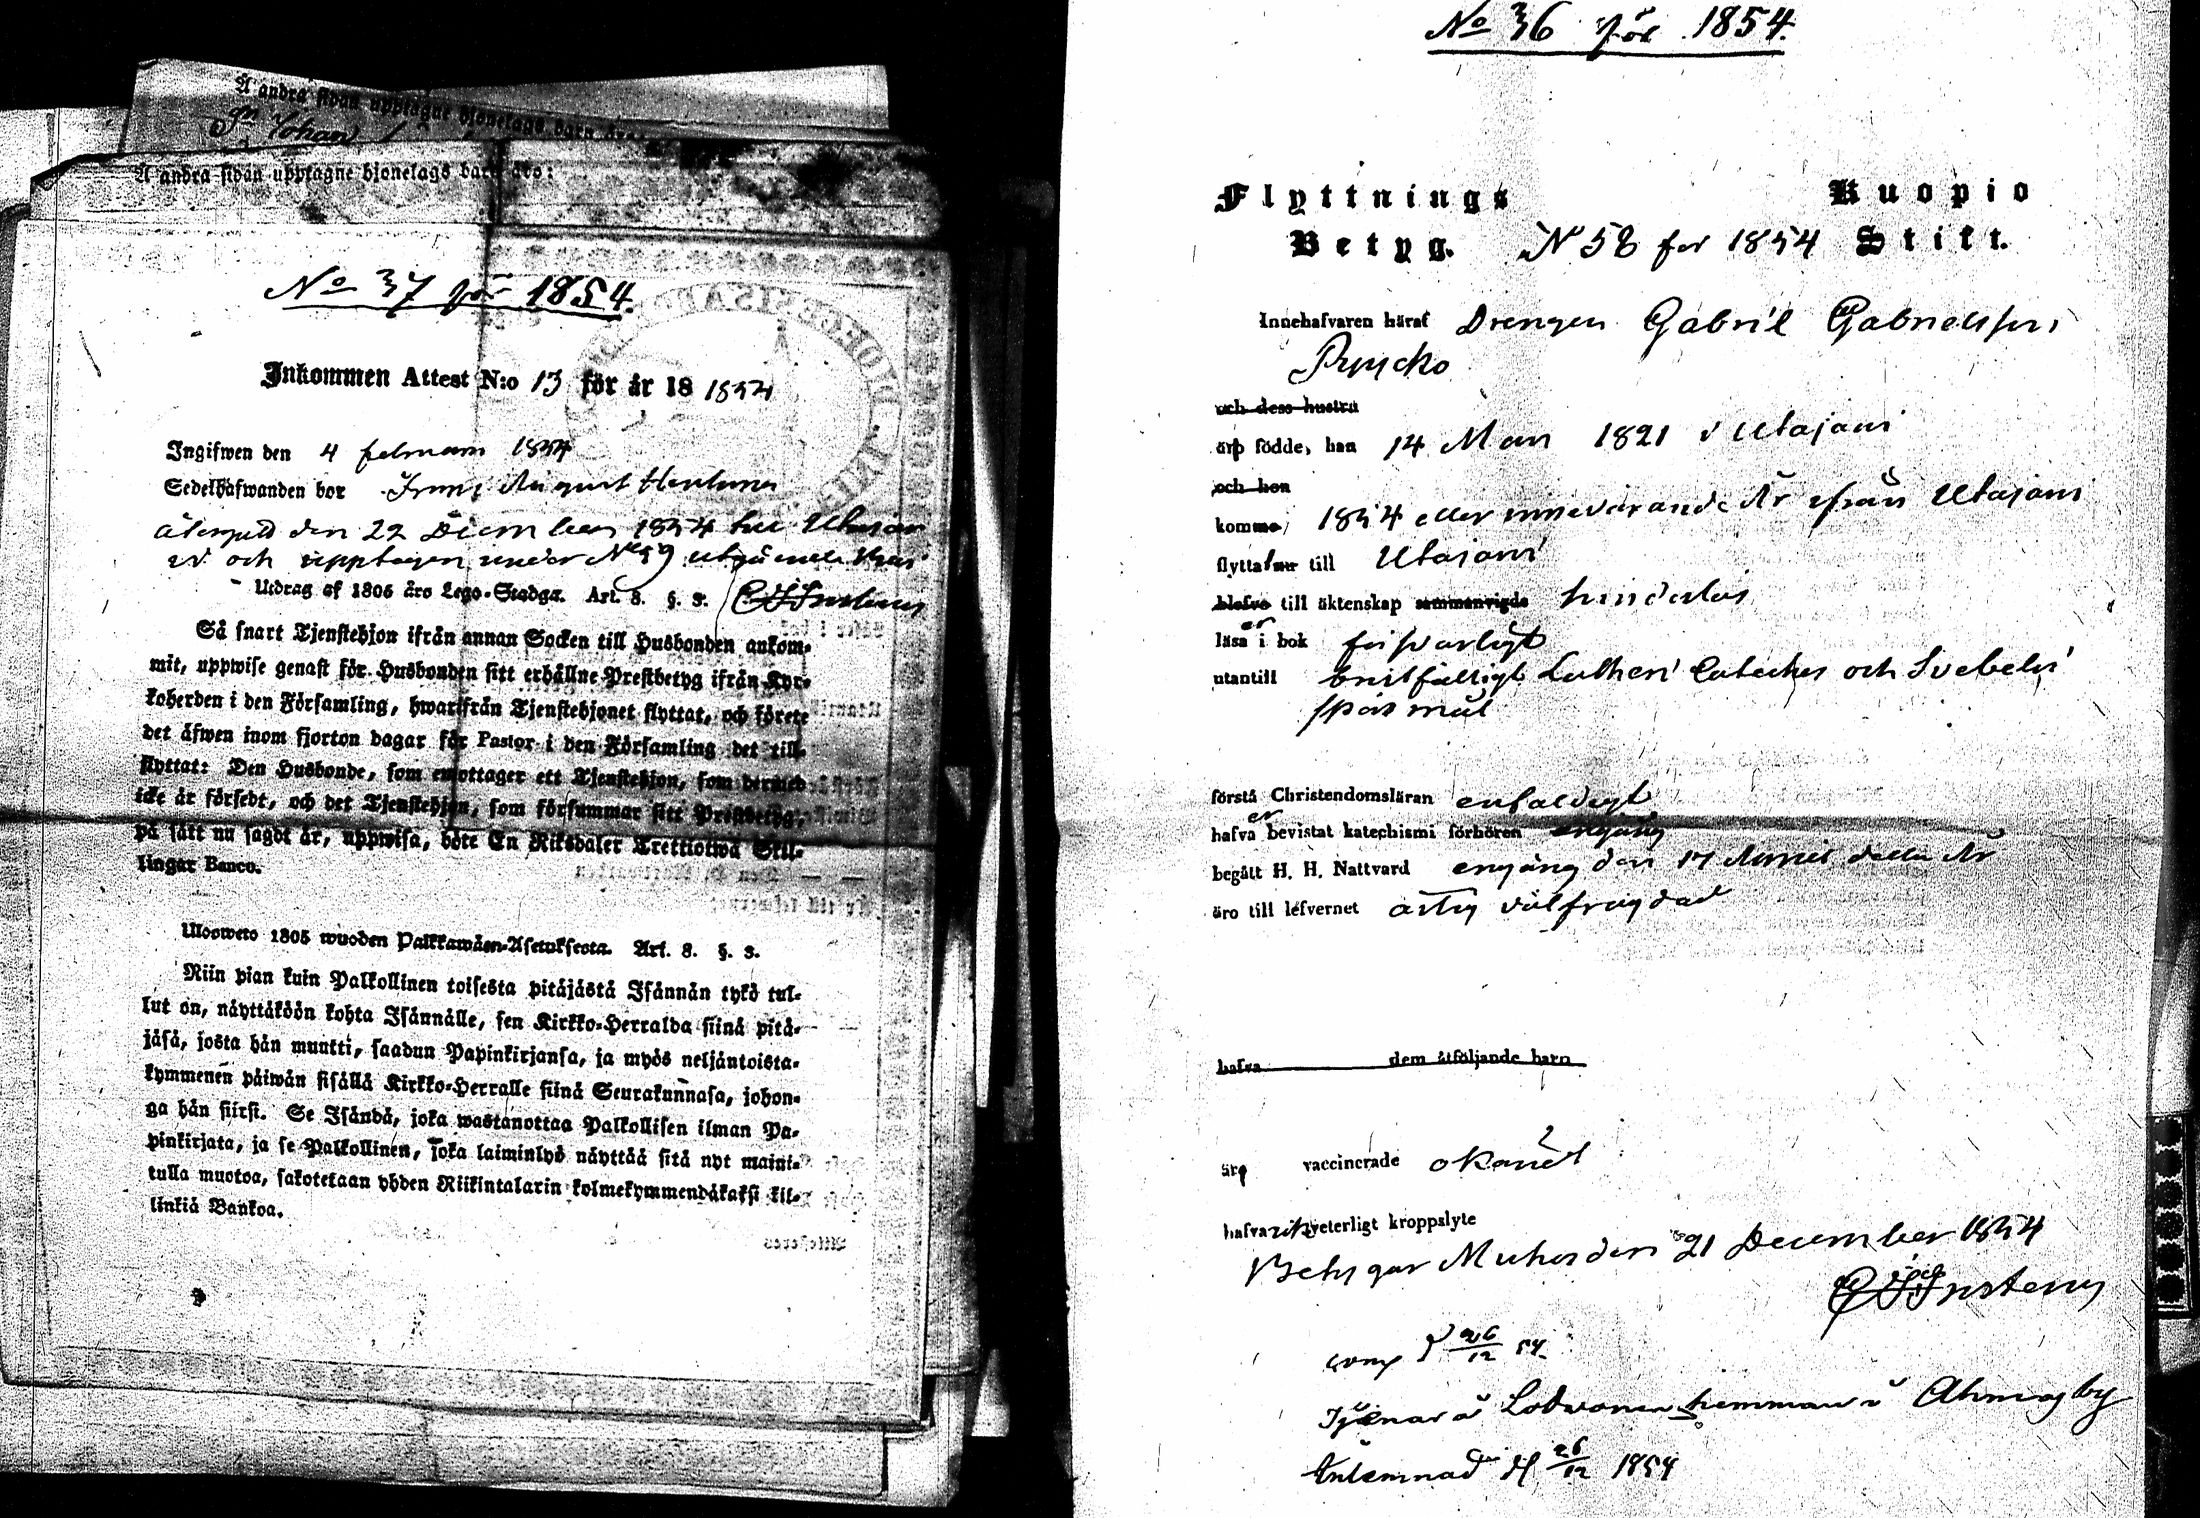 Å andra sidan upptagne hjonelags barn äro:
Johan
Å andra sidan upptagne hjonelags barn äro:
No 37 för 1854.
Inkommen Attest N:o 13 för år 18 1854
Ingifwen den 4 februari 1854
Sedelhafwanden bor
den 22 December 1854 till Utajär
vi och upptagen under No 59 utgående
Utdrag af 1805 års Lego-Stadga. Art. 8. §. 3.
Så snart Tjenstehjon ifrån annan Socken till Husbonden ankom-
mit, uppwise genast för Husbonden sitt erhållne Prestbetyg ifrån Kyr-
koherden i den Församling, hwarifrån Tjenstehjonet flyttat, och förete
det äfwen inom fjorton dagar för Pastor i den Församling det till-
flyttat: Den Husbonde, som emottager ett Tjenstehjon, som dermed
icke är försedt, och det Tjenstehjon, som försummar sitt Prestbetyg,
på sätt nu sagdt är, uppwisa, böte En Riksdaler Trettiotwå Skil-
lingar Banco.
Ulosweto 1805 wuoden Palkkawäen-Asetuksesta. Art. 8. §. 3.
Niin pian kuin Palkollinen toisesta pitäjästä Isännän tykö tul-
lut on, näyttäköön kohta Isännälle, sen Kirkko-Herralda siinä pitä-
jäsä, josta hän muutti, saadun Papinkirjansa, ja myös neljäntoista-
kymmenen päiwän sisällä Kirkko-Herralle siinä Seurakunnasa, johon-
ga hän siirst. Se Isändä, joka wastanottaa Palkollisen ilman Pa-
pinkirjata, ja se Palkollinen, joka laiminlyö näyttää sitä nyt maini-
tulla muotoa, sakotetaan yhden Riikintalarin kolmekymmendäkaksi kil-
linkiä Bankoa.
No 36 för 1854.
Flyttnings Kuopio
Betyg. N 58 för 1854 Stift.
Innehafvaren häraf Drengen Gabriel Gabrielsson
Pyycko
och dess hustru
äro födde, han 14 Mars 1821 i Utajärvi
och hon
komme 1854 eller innevarande År ifrån Utajärvi
flytta till Utajärvi
blefvo till äktenskap sammanvigde hinderlös
läsa i bok försvarligt
utantill bristfälligt Lutheri Cateches och Svebelii
spörsmål
förstå Christendomsläran enfaldigt
hafva bevistat katechismi förhören engång
begått H. H. Nattvard engång den 17 April detta År
äro till lefvernet ärlig välfrägdad
hafva dem åtföljande barn
äro vaccinerade okändt
hafva icke veterligt kroppslyte
Betygar Muhos den 21 December 1854
26/12 54
Tjenar å Lodvonen hemman i Ahmas by
Inlemnad d 26/12 1854